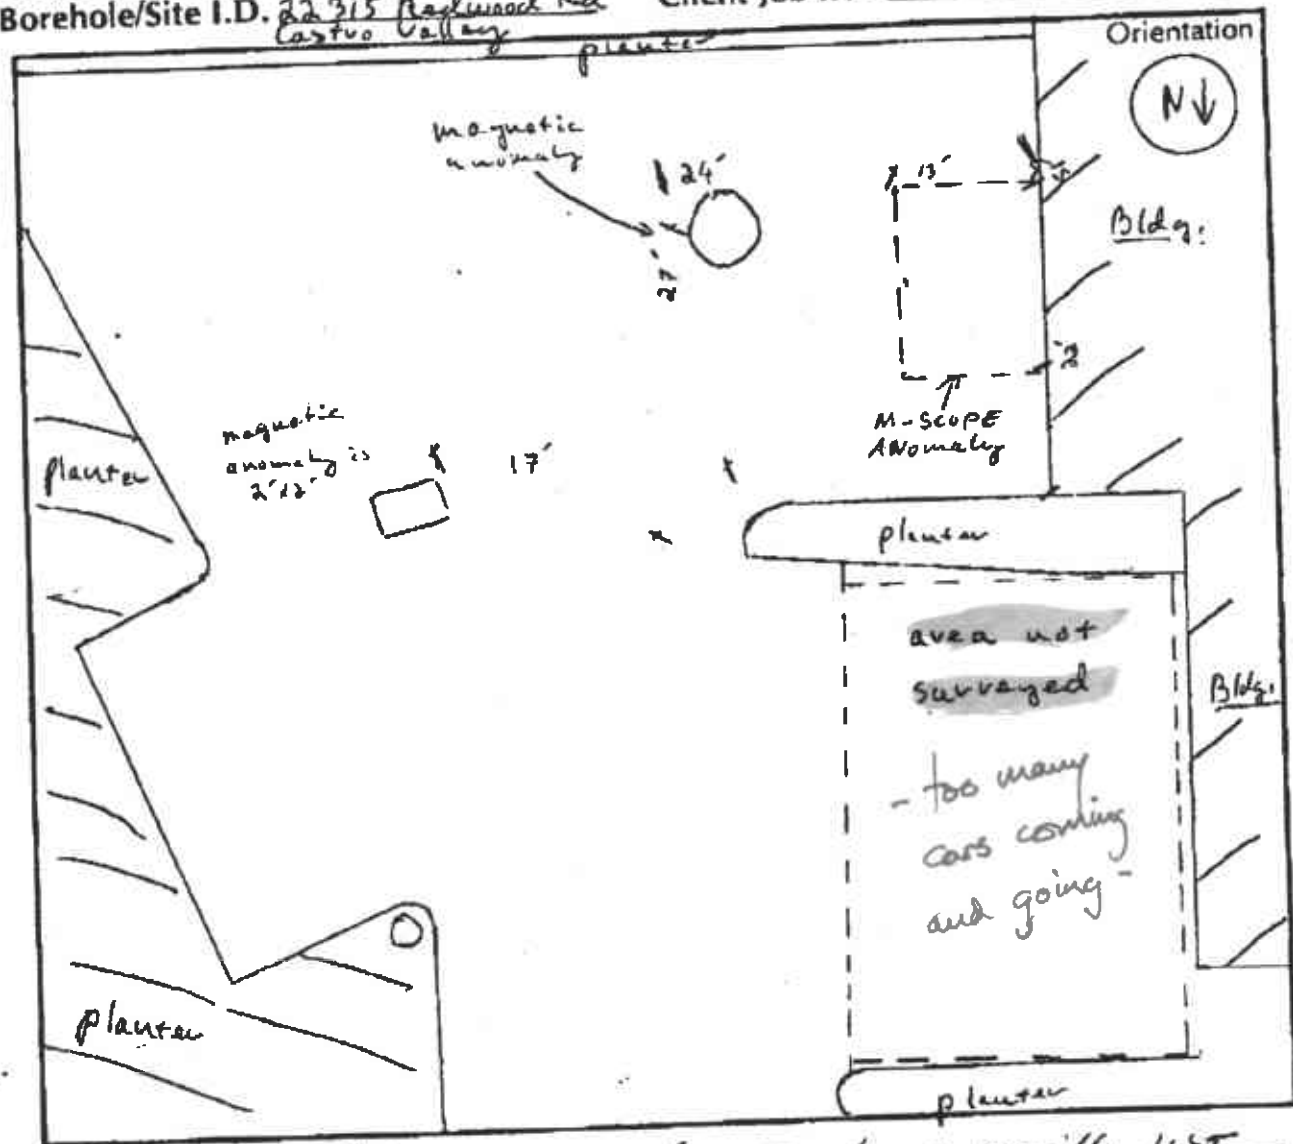 Borehole/Site I.D. 22315 Redwood Rd
Castro Valley
planter
Orientation
N↓
magnetic
anomaly
24'
13'
Bldg.
2'
M-SCOPE
ANomaly
magnetic
anomaly is
2'x2'
17'
planter
planter
area not
surveyed
Bldg.
- too many
cars coming
and going -
planter
planter